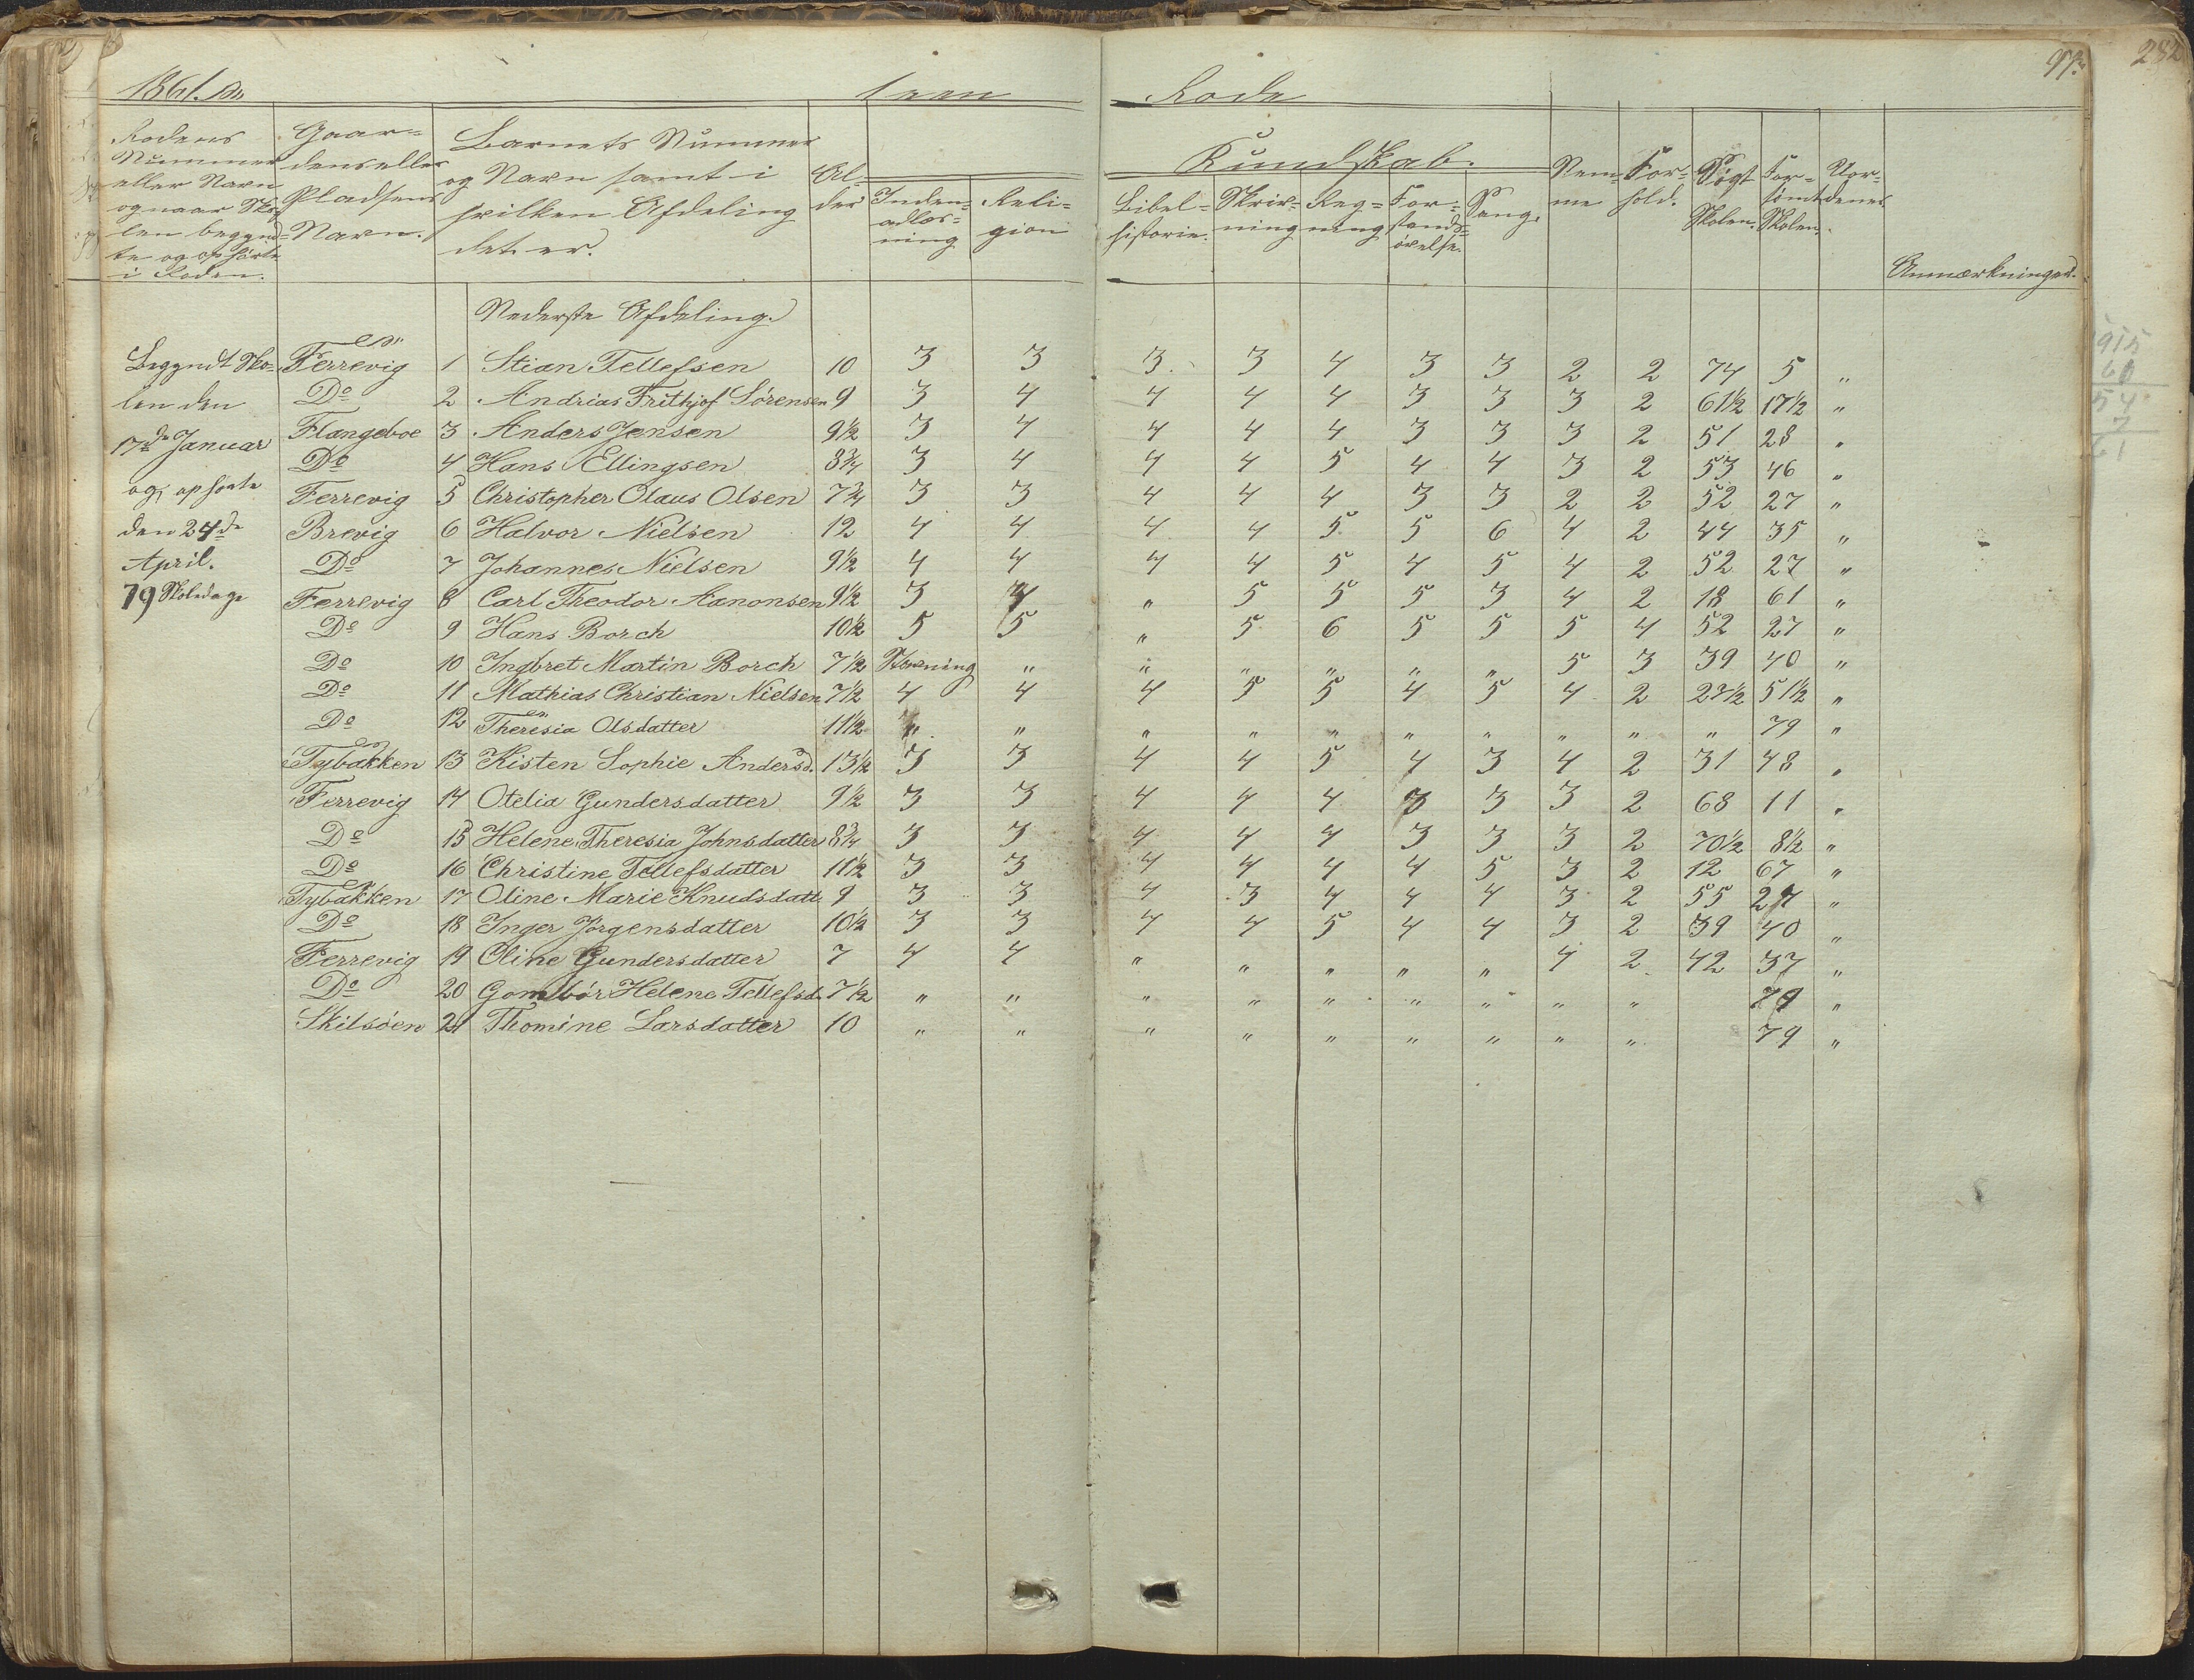 1861.
1
Rode
97.
282
Rodens
Nummer
eller Navn
og naar Sko-
len begynd-
te og ophörte
i Roden.
Gaar-
dens eller
Pladsens
Navn.
Barnets Nummer
og Navn samt i
hvilken Afdeling
det er.
Al-
der
Inden-
adlæs-
ning
Reli-
gion
Kundskab.
Bibel-
historie.
Skriv-
ning
Reg-
ning
For-
stands-
øvelse.
Sang.
Nem-
me
For-
hold.
Søgt
Skolen.
For-
sömt
Skolen.
Uor-
denes
Anmærkninger.
Nederste Afdeling.
Begyndt Sko-
len den
17de Januar
og ophörte
den 24de
April.
79 Skoledage
Færrevig 1 Stian Tellefsen 10 3 3 3 3 4 3 3 2 2 74 5 "
Do 2 Andrias Frithjof Sørensen 9 3 4 4 4 4 3 3 3 2 61½ 17½ "
Flangeboe 3 Anders Jensen 9½ 3 4 4 4 4 3 3 3 2 51 28 "
Do 4 Hans Ellingsen 8¾ 3 4 4 4 5 4 4 3 2 53 46 "
Ferrevig 5 Christopher Olaus Olsen 7¾ 3 3 4 4 4 3 3 2 2 52 27 "
Brevig 6 Halvor Nielsen 12 4 4 4 4 5 5 6 4 2 44 35 "
Do 7 Johannes Nielsen 9½ 4 4 4 4 5 4 5 4 2 52 27 "
Ferrevig 8 Carl Theodor Aanonsen 9½ 3 4 " 5 5 5 3 4 2 18 61 "
Do 9 Hans Borch 10½ 5 5 " 5 6 5 5 5 4 52 27 "
Do 10 Ingbret Martin Borch 7½ Stavning " " " " " " 5 3 39 40 "
Do 11 Mathias Christian Nielsen 7½ 4 4 4 5 5 4 5 4 2 27½ 51½ "
Do 12 Theresia Olsdatter 11½ " " " " " " " " " " 79 "
Tybakken 13 Kisten Sophie Andersd. 13½ 3 3 4 4 5 4 3 4 2 31 48 "
Ferrevig 14 Otelia Gundersdatter 9½ 3 3 4 4 4 3 3 3 2 68 11 "
Do 15 Helene Theresia Johnsdatter 8¾ 3 3 4 4 4 3 3 3 2 70½ 8½ "
Do 16 Christine Tellefsdatter 11½ 3 3 4 4 4 4 5 3 2 12 67 "
Tybakken 17 Oline Marie Knudsdatt. 9 3 3 4 3 4 4 4 3 2 55 24 "
Do 18 Inger Jörgensdatter 10½ 3 3 4 4 5 4 4 3 2 39 40 "
Ferrevig 19 Oline Gundersdatter 7 4 4 " " " " " 4 2 42 37 "
Do 20 Gombör Helene Tellefsd. 7½ " " " " " " " " " 79 "
Skilsöen 21 Thomine Larsdatter 10 " " " " " " " " " 79 "